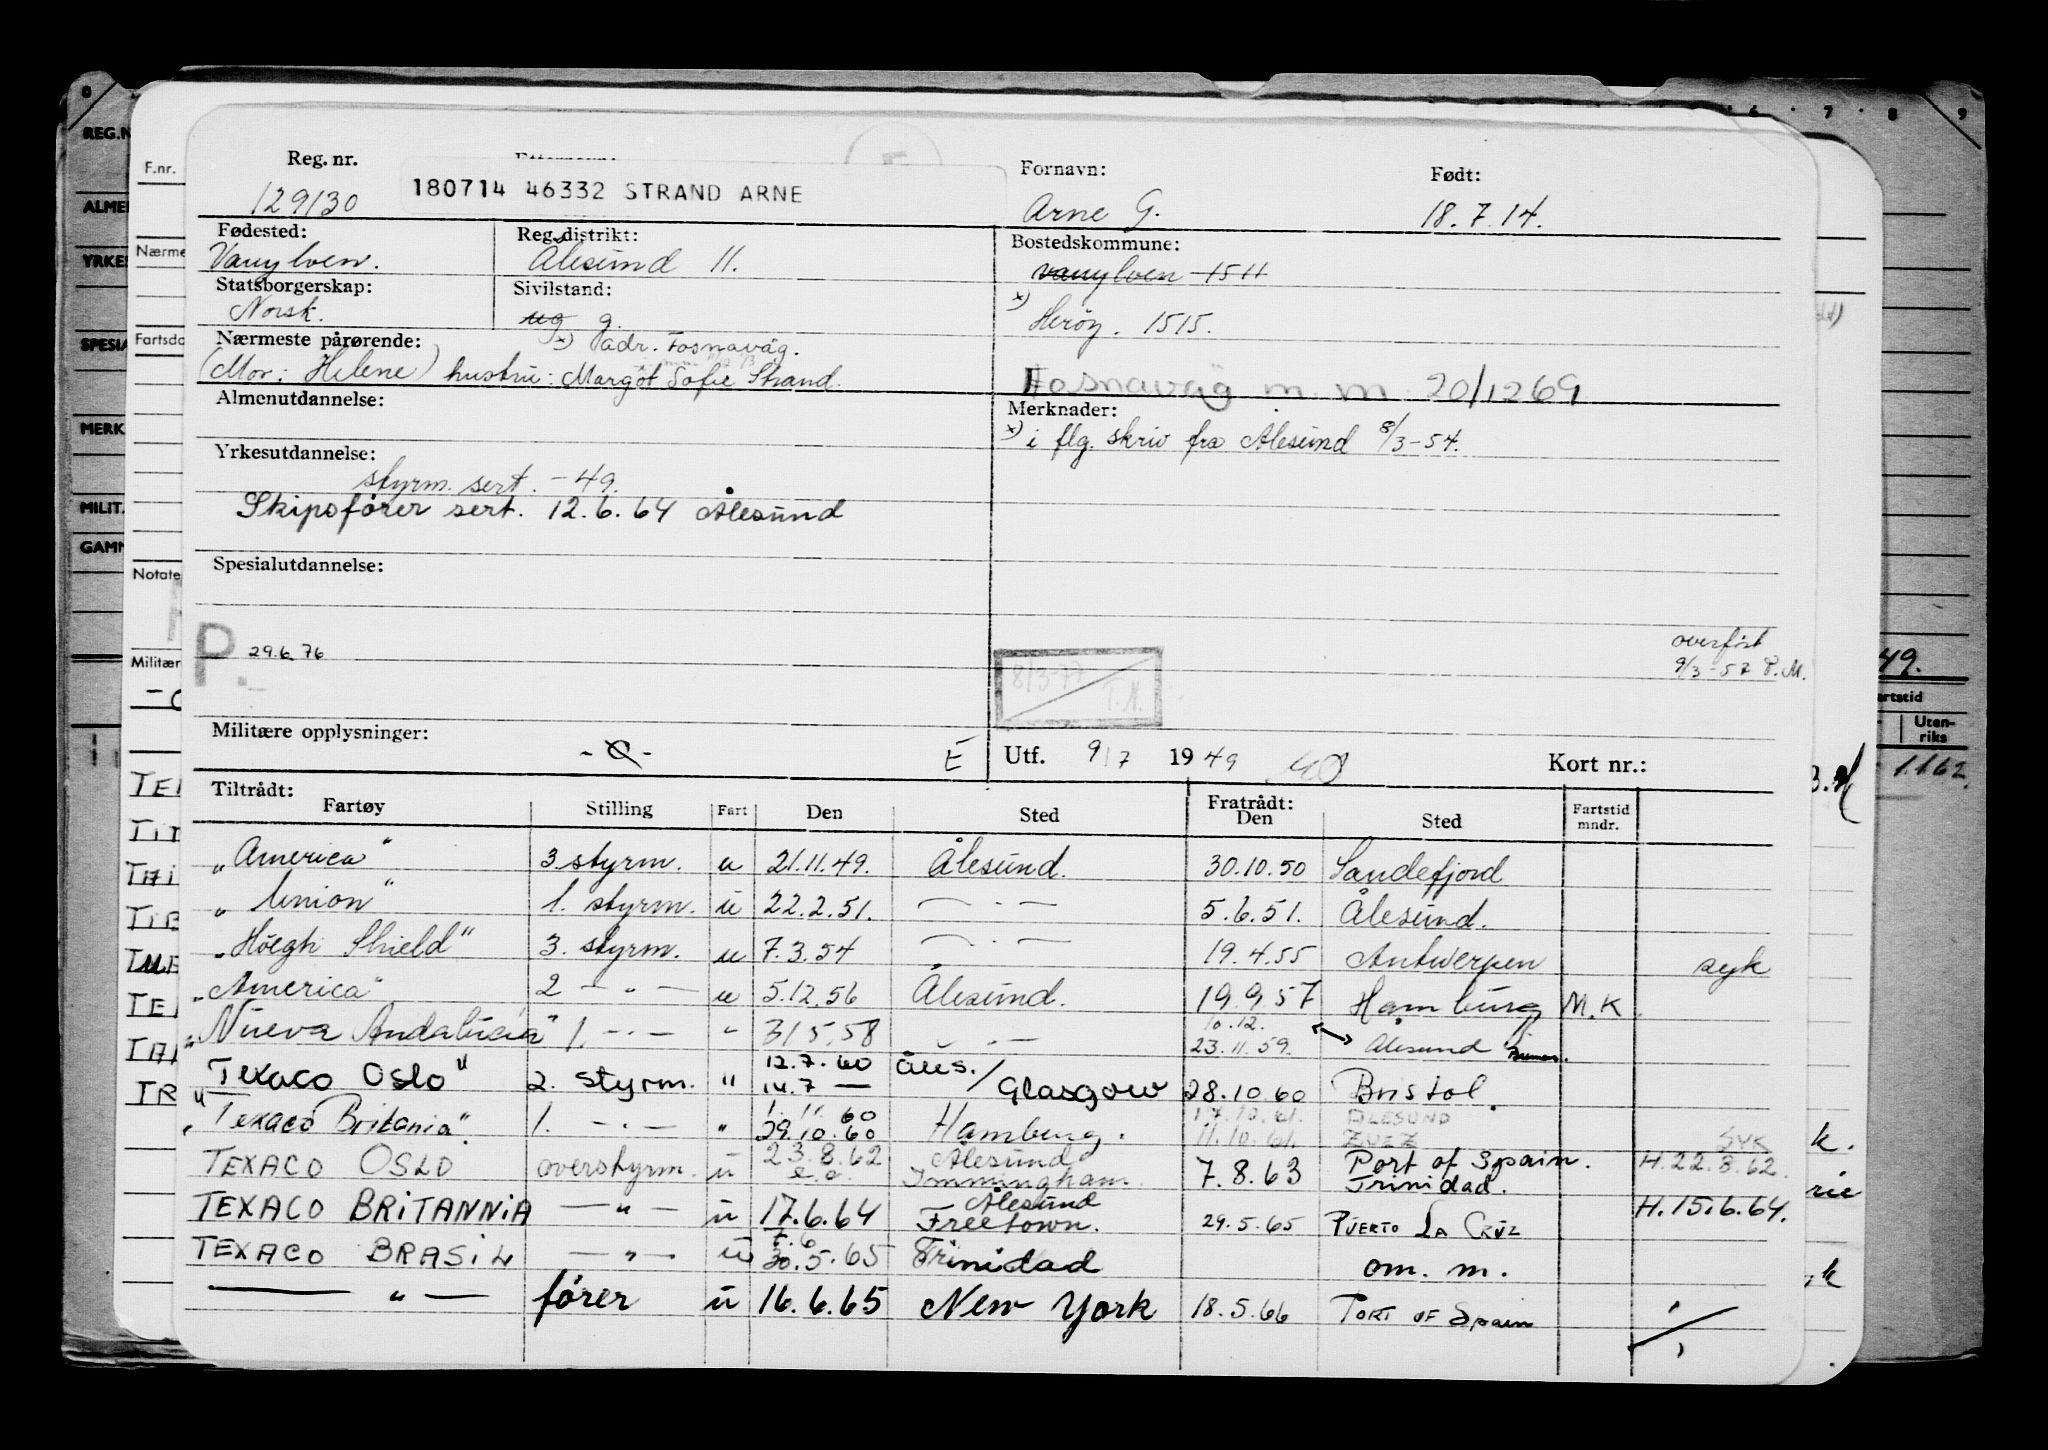 Reg. nr.
129130
180714 46332 STRAND ARNE
Fornavn:
Arne G.
Født:
18.7.14.
Fødested:
Vanylven.
Reg. distrikt:
Ålesund 11.
Bostedskommune:
vanylven 1511
x) Herøy. 1515.
Statsborgerskap:
Norsk.
Sivilstand:
ug g.
Nærmeste pårørende:
x) adr. Fosnavåg.
(Mor: Helene) hustru: Margot Sofie Strand.
Fosnavåg m. m 20/12 69
Almenutdannelse:
Merknader:
x) i flg. skriv fra Ålesund 8/3-54.
Yrkesutdannelse:
styrm. sert. -49.
Skipsfører sert. 12.6.64 Ålesund
Spesialutdannelse:
P. 29.6.76
8/3-77
T.M.
overført
9/3-57 P.M.
Militære opplysninger:
E
Utf. 9/7 1949
Kort nr.:
Tiltrådt:
Fartøy Stilling Fart Den Sted Fratrådt: Den Sted Fartstid mndr.
„America" 3 styrm. u 21.11.49. Ålesund. 30.10.50 Sandefjord
„Union" 1. styrm. u 22.2.51. — . — 5.6.51. Ålesund.
„Höegh Shield" 3. styrm. u 7.3.54 — . — 19.4.55 Antwerpen syk
„America" 2 — " — u 5.12.56 Ålesund. 19.9.57 Hamburg M.K.
„Nueva Andalucia" 1. — . — " 31.5.58 — . — 10.12. 23.11.59. Ålesund
"Texaco Oslo" 2. styrm. " 12.7.60 14.7 — Åles./Glasgow 28.10.60 Bristol.
„Texaco Britania". 1. — . — " 1.11.60 29.10.60 Hamburg. 17.10.61. ÅLESUND 11.10.61. ZUEZ SYK
TEXACO OSLO overstyrm. u 23.8.62 Ålesund Immingham. 7.8.63 Port of Spain. Trinidad. H.22.8.62.
TEXACO BRITANNIA — " — u 17.6.64 Ålesund Freetown. 29.5.65 PUERTO LA CRUZ H.15.6.64.
TEXACO BRASIL — " — u 30.5.65 Trinidad om. m.
— " — fører u 16.6.65 New York 18.5.66 PORT OF Spain
REG.N
ALMEN
YRKES
SPESIA
MERK
MILIT.
GAMM
F.nr.
Nærme
Fartsdo
Notate
Militær
49.
Uten-
riks
1.162